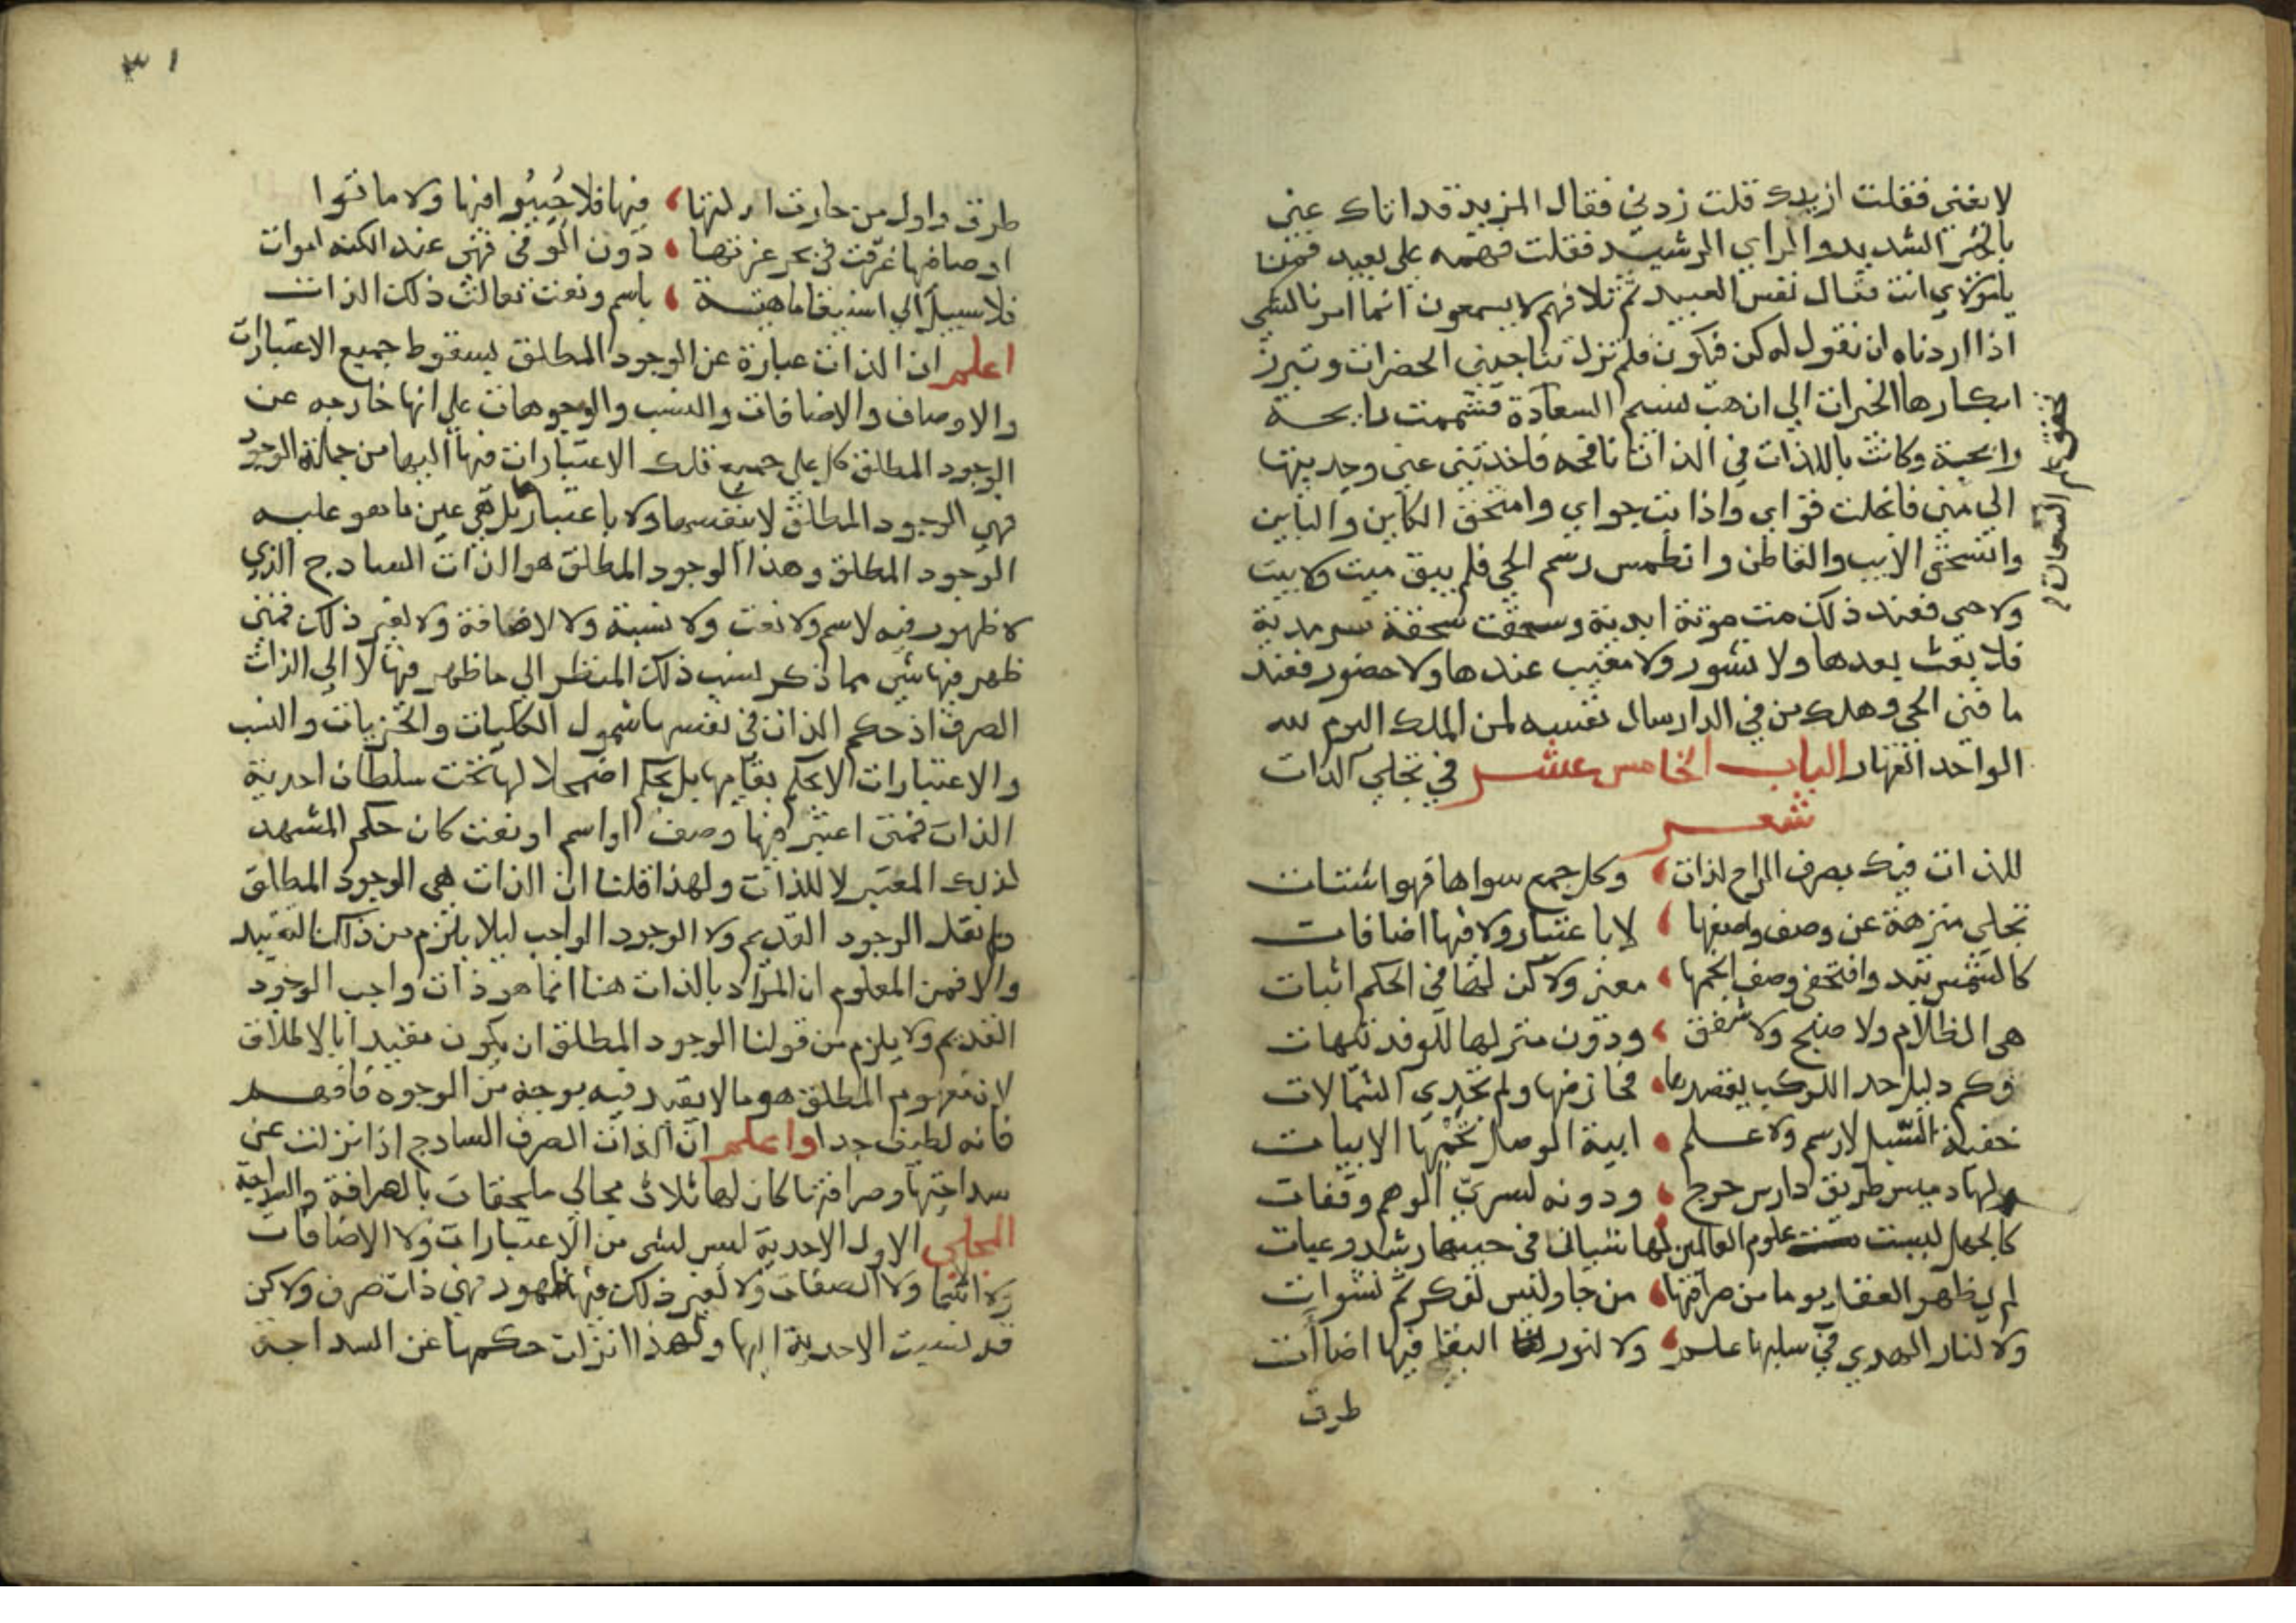 لا يغني فقلت ازيدك قلت زدني فقال المزيد قد اتاك عني
بالخبر السديد والراي الرشيد فقلت فهمه على بعيد فمن
يا مولاي انت فقال نفس العبيد ثم تلا فهم لا يسمعون انما امرنا لشي
اذا اردناه ان نقول له كن فيكون فلم تزل تناجيني الحضرات وتبرز
ابكارها الخيرات الى ان هب نسيم السعادة فشممت رايحة
رايحة وكانت بالذات في الذات نافحه فاخذتني عني وحديتها
الى مني فانحلت قواي واذا بت جواي وامتحق الكاين والباين
وانسحق الايب والقاطن وانطمس رسم الحي فلم يبق ميت ولا بيت
ولا حي فعند ذلك مت موتة ابدية وسحقت سحقة سرمدية
فلا بعث بعدها ولا نشور ولا مغيب عندها ولا حضور فعند
ما فني الحي وهلك من في الدار سال نفسه لمن الملك اليوم لله
الواحد القهار الباب الخامس عشر في تجلي الذات
شعر
للذات فيك بصرف الراح لذات وكل جمع سواها فهو اشتات
تجلي منزهة عن وصف واصفها لا باعتبار ولا فيها اضافات
كالشمس تبد وافتخفى وصف انجمها معنى ولاكن لها في الحكم اثبات
هي الظلام ولا صبح ولا شفق ودون منزلها للوفد تيهات
وكم دليل حد الركب يقصدها فحار فيها ولم تجدي الشمالات
خفية السبل لا رسم ولا علم ابية الوصل تحميها الابيات
ولها د ميس طريق دارس حرج ودونه لسري الوهم وقفات
كالجهل ليست علوم العالمين لها شيان في حبيها رشد وغيات
لم يظهر العقل يوما من صرافتها من جاو ليس لفكر ثم نشوات
ولا لنار الهدى في سبلها علم ولا لنور التقا فيها اضاآت
طرق
٣١
طرق واول من حارت ادلتها فيها فلا حُيِيُوا فيها ولا ماتوا
اوصافها غرقت في بحر عزتها دون الوفى فهي عند الكنه اموات
فلا سبيل الى استيفا ماهية باسم ونعت تعالت ذلك الذات
اعلم ان الذات عبارة عن الوجود المطلق بسقوط جميع الاعتبارات
والاوصاف والاضافات والنسب والوجوهات على انها خارجه عن
الوجود المطلق كل على جميع تلك الاعتبارات فيها اليها من جملة الوجود
فهي الوجود المطلق لا بنفسها ولا باعتبارها بل هي عين ما هو عليه
الوجود المطلق وهذا الوجود المطلق هو الذات السادج الذي
لا ظهور فيه لاسم ولا نعت ولا نسبة ولا لاضافة ولا لغير ذلك فمتى
ظهر فيها شي مما ذكر نسب ذلك المنظر الى ما ظهر فيها لا الى الذات
الصرف اذ حكم الذات في نفسها شمول الكليات والجزيات والنسب
والاعتبارات لا بحكم بقايها بل بحكم اضمحلالها تحت سلطان احدية
الذات فمتى اعتبر فيها وصف او اسم او نعت كان حكم المشهد
لذلك المعتبر لا للذات ولهذا قلنا ان الذات هي الوجود المطلق
ولم نقل الوجود القديم ولا الوجود الواجب ليلا يلزم من ذلك التقييد
والا فمن المعلوم ان المراد بالذات هنا انما هو ذات واجب الوجود
القديم ولا يلزم من قولنا الوجود المطلق ان يكون مقيدا بالاطلاق
لان مفهوم المطلق هو ما لا يقيد فيه بوجه من الوجوه فافهم
فانه لطيف جدا واعلم ان الذات الصرف السادج اذا نزلت عن
سداجتها وصرافتها كان لها ثلاث مجالي ملحقات بالصرافة والسداجة
المجلي الاول الاحدية ليس لشي من الاعتبارات ولا الاضافات
ولا الاسما ولا الصفات ولا لغير ذلك فيها ظهور فهي ذات صرف ولاكن
قد نسبت الاحدية اليها ولهذا انزلت حكمها عن السداجة